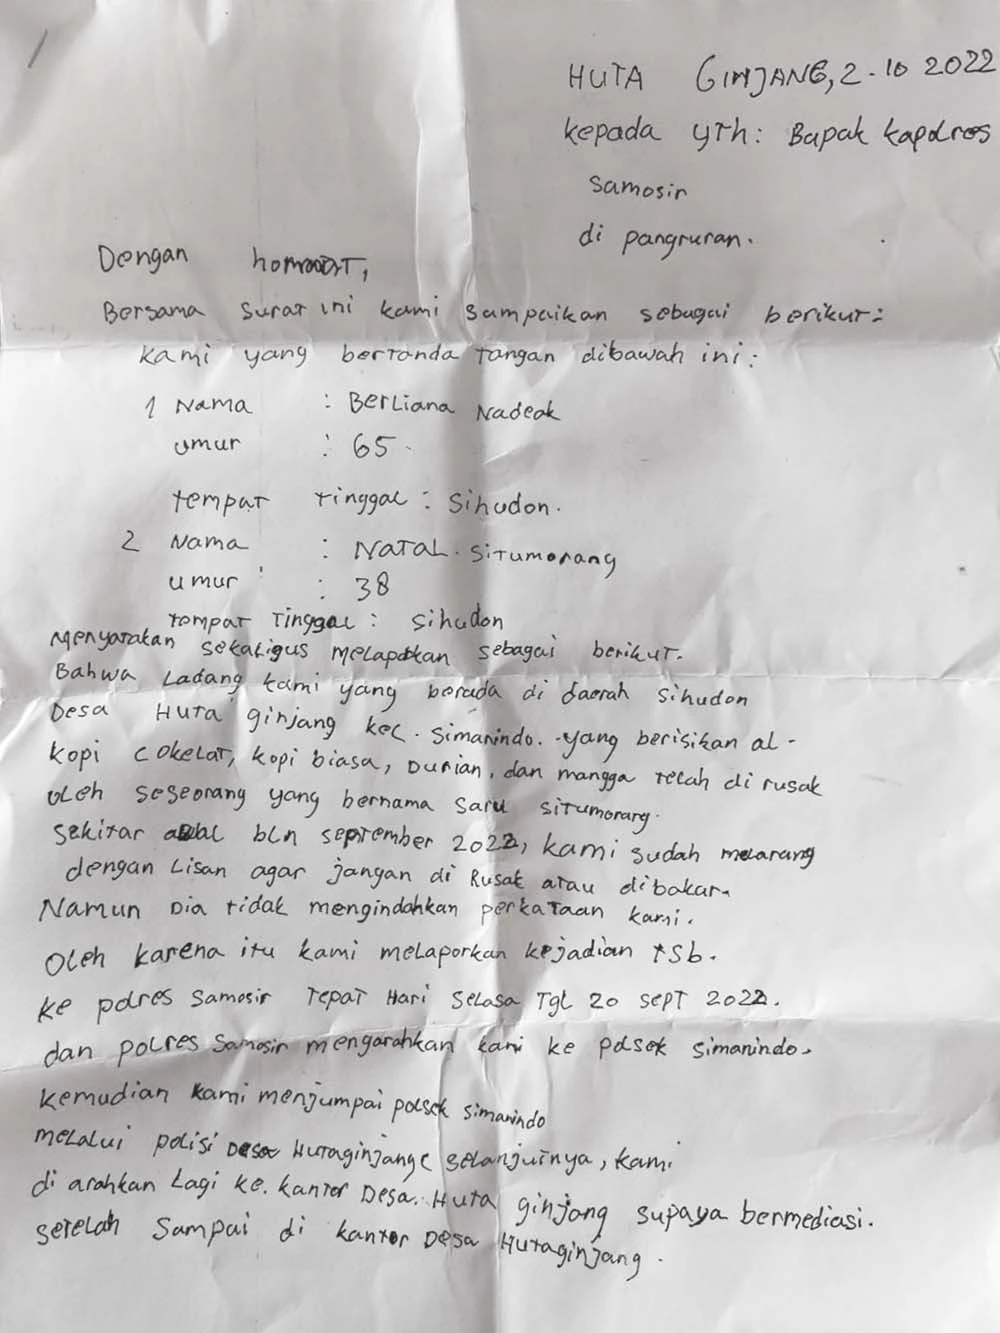 HUTA GINJANG, 2-10 2022
kepada yth: Bapak kapolres
samosir
di pangruran.
Dengan hormat,
Bersama surat ini kami sampaikan sebagai berikut:
kami yang bertanda tangan dibawah ini:
1 Nama : Berliana Nadeak
umur : 65
tempat tinggal : Sihudon.
2 Nama : NATAL. Situmorang
umur : 38
tempat Tinggal : Sihudon
Menyatakan sekaligus melaporkan sebagai berikut.
Bahwa Ladang kami yang berada di daerah Sihudon
Desa Huta ginjang kec. Simanindo. -yang berisikan al-
kopi cokelat, kopi biasa, Durian, dan mangga telah di rusak
oleh seseorang yang bernama Saru Situmorang.
Sekitar awal bln september 2022, kami sudah melarang
dengan Lisan agar jangan di Rusak atau dibakar.
Namun Dia tidak mengindahkan perkataan kami.
Oleh karena itu kami melaporkan kejadian tsb.
ke polres Samosir Tepat Hari Selasa Tgl 20 Sept 2022.
dan polres Samosir mengarahkan kami ke polsek Simanindo.
kemudian kami menjumpai polsek Simanindo
melalui polisi Desa Hutaginjang selanjutnya, kami
di arahkan Lagi ke. kantor Desa. Huta ginjang supaya bermediasi.
setelah Sampai di kantor Desa Hutaginjang.